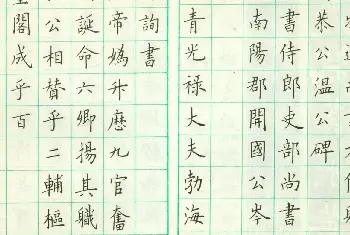 恭公溫公碑
書侍郎吏部尚書
南陽郡開國公岑
青光祿大夫勃海
詢書
帝媯升歷九官奮
誕命六卿揚其職
公相贊乎二輔樞
閣成乎百